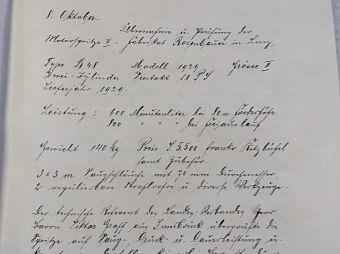 8. Oktober.
Übernahme u. Prüfung der
Motorspritze II. Fabrikat Rosenbauer in Linz.
Type R 48 Modell 1929 Grösse II
Zwei-Zylinder Viertakt 18 PS
Lieferjahr 1929.
Leistung: 600 Minutenliter bei 80 m Förderhöhe
800 " " bei Freiauslauf
Gewicht 140 kg Preis S 5.500 franko Kitzbühel
samt Zubehör.
3 Saugschläuche mit 70 mm Durchmesser
2 regulierbare Strahlrohre u. diverse Werkzeuge.
Der technische Referent des Landes-Verbandes Herr
Baron Viktor Graff aus Innsbruck überprüfte die
Spritze auf Saug-, Druck- u. Dauerleistung u.